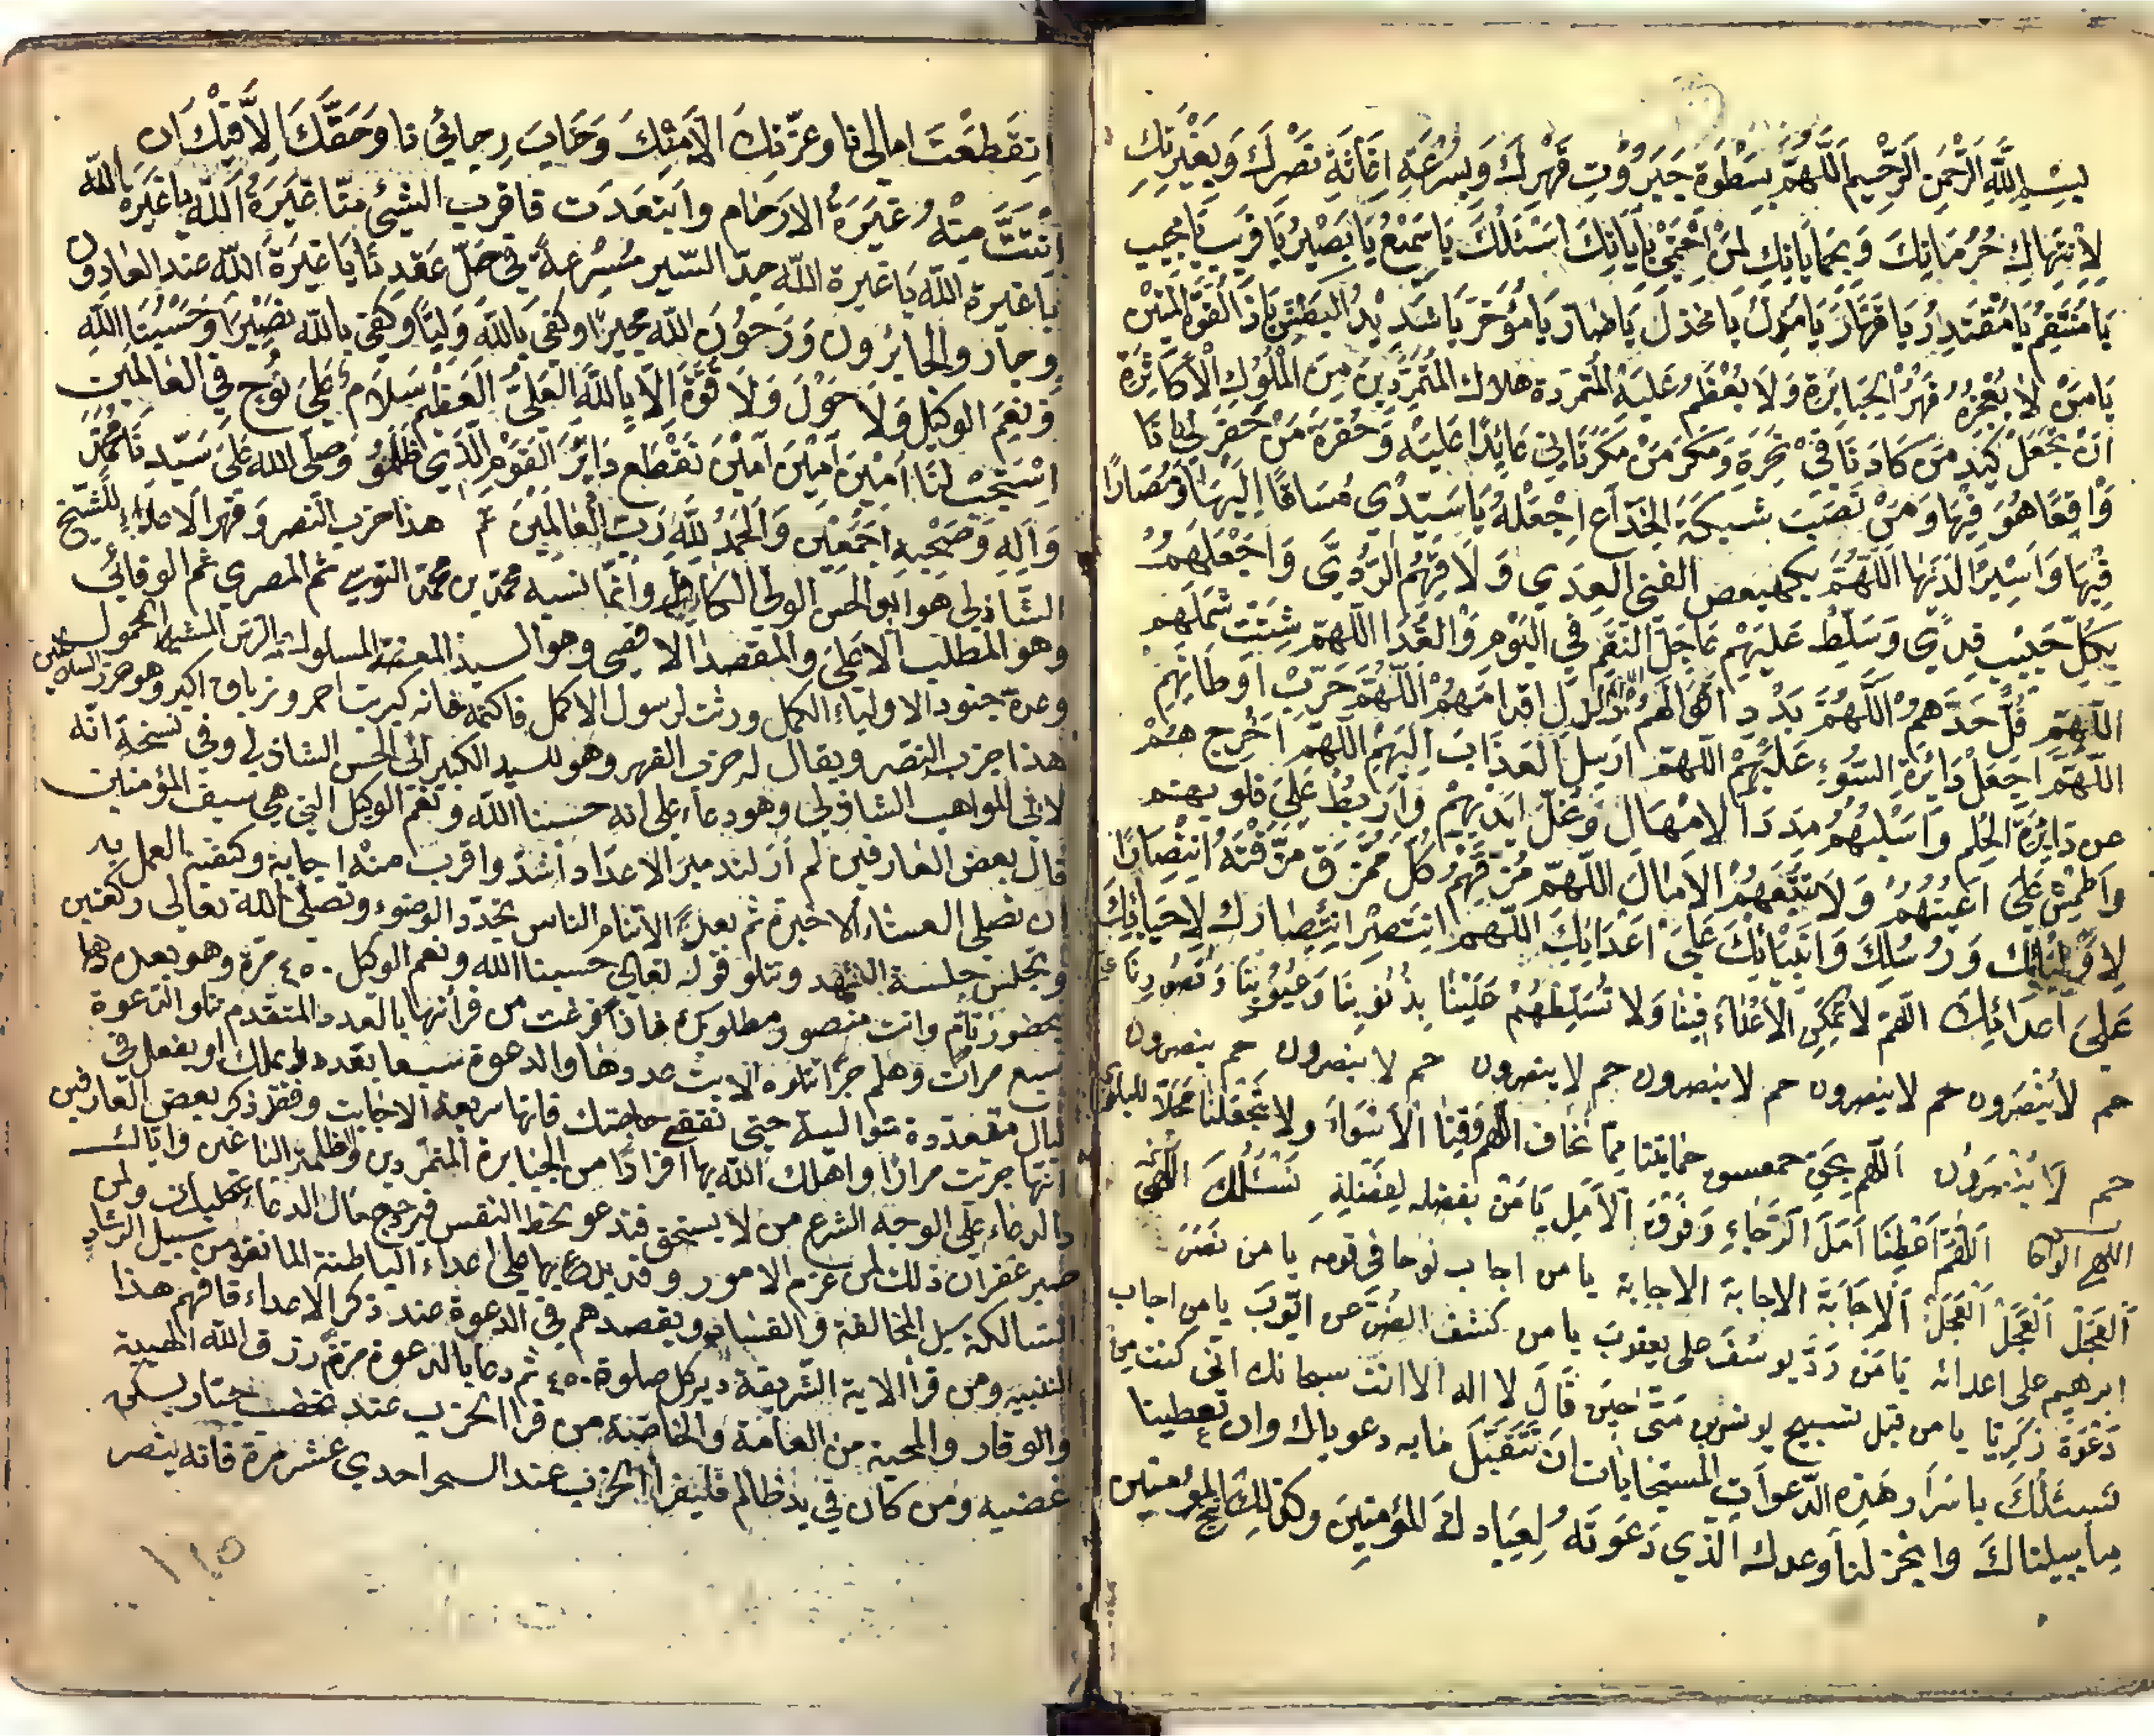 بِسْمِ اللَّهِ الرَّحْمٰنِ الرَّحِيمِ اَللّٰهُمَّ بِسَطْوَةِ جَبَرُوْتِ قَهْرِكَ وَبِسُرْعَةِ اِغَاثَةِ نَصْرِكَ وَبِغَيْرَتِكَ
لِاِنْتِهَاكِ حُرُمَاتِكَ وَبِحِمَايَاتِكَ لِمَنْ اِحْتَمٰى بِاٰيَاتِكَ اَسْئَلُكَ يَا سَمِيْعُ يَا بَصِيْرُ يَا قَرِيبُ يَا مُجِيب
يَا مُنْتَقِمُ يَا مُقْتَدِرُ يَا قَهَّارُ يَا مُذِلُّ يَا مخذل يَا ضَارُّ يَا مُؤَخِّرُ يَا شَدِيْدُ البَطْشِ يَا ذَا القُوَّةِ المَتِيْنِ
يَا مَنْ لَا يُعْجِزُهُ قَهْرُ الجَبَابِرَةِ وَلَا يَعْظُمُ عَلَيْهِ المُتَمَرِّدَة هلاك المُتَمَرِّدِينَ مِنَ المُلُوْكِ الْاَكَاسِرَةِ
اَنْ تَجْعَلَ كَيْدَ مَنْ كَادَنَا فِي نَحْرِهِ وَمَكْرَ مَنْ مَكَرَنَا بِي عَايِدًا عَلَيْهِ وَحُفْرَةَ مَنْ حَفَرَ لَنَا
وَاقِعًا هُوَ فِيْهَا وَمَنْ نَصَبَ شَبَكَةَ الخِدَاعِ اِجْعَلْهُ يَا سَيِّدِي مُسَاقًا اِلَيْهَا وَمُصَادًا
فِيْهَا وَاَسِيْرًا لَدَيْهَا اَللّٰهُمَّ بكهيعص اكفنى العِدٰى وَلَاقِهِمُ الرَّدٰى وَاجْعَلْهُمْ
بِكُلِّ حَبِيْبٍ فِدًى وَسَلِّطْ عَلَيْهِمْ عَاجِلَ النِّقَمِ فِي اليَوْمِ وَالغَدَا اَللّٰهُمَّ شَتِّتْ شَمْلَهُم
اَللّٰهُمَّ قَلِّلْ حَدَّهُمْ اَللّٰهُمَّ بَدِّدْ اقوالهُمْ زلزل اقدامَهُمْ اَللّٰهُمَّ خَرِّبْ اَوطَانَهُمْ
اَللّٰهُمَّ اجْعَلْ دَائِرَةَ السَّوْءِ عَلَيْهِمْ اَللّٰهُمَّ اَرْسِلِ العَذَابَ اِلَيْهِمْ اَللّٰهُمَّ اَخْرِجْهُمْ
عن دَايِرَةِ الحِلْمِ وَاسْلُبْهُمْ مَدَدَ الاِمْهَالِ وَغُلَّ اَيْدِيَهُمْ وَارْبُطْ عَلٰى قلوبهم
وَاطْمِسْ عَلٰى اَعْيُنِهُمْ وَلَا تُبَلِّغْهُمُ الاٰمَالَ اَللّٰهُمَّ مَزِّقْهُمْ كُلَّ مُمَزَّقٍ مَزَّقْتَهُ اِنْتِصَارًا
لِاَنْبِيَائِكَ وَرُسُلِكَ وَاَنْبِيَائِكَ عَلٰى اَعْدَائِكَ اَللّٰهُمَّ انْتَصِرْ اِنْتِصَارَكَ لِاَحْبَابِكَ
عَلٰى اَعْدَائِكَ اَللّٰهُمَّ لَا تُمَكِّنِ الاَعْدَاءَ فِيْنَا وَلَا تُسَلِّطْهُمْ عَلَيْنَا بِذُنُوبِنَا وَعُيُوْبِنَا وَقُصُورِنَا
حم لَا يُنْصَرُون حم لاينصرون حم لاينصرون حم لاينصرون حم لاينصرون حم ينصرون
حم لَا يُنْصَرُون اَللّٰهُمَّ بِحَقِّ حمعسق حِمَايَتُنَا مِمَّا نَخَاف اللّٰهم قِنَا الاَسْوَاءَ وَلَا تَجْعَلْنَا مَحَلًّا للبلوى
اَللّٰهُمَّ اَعْطِنَا اَمَلَ الرَّجَاءِ وَفَوْقَ الاَمَلِ يَا مَنْ بفضله لِفَضْلِهِ نَسْئَلُكَ اِلٰهِى
اَلعَجَلَ اَلعَجَلَ اَلعَجَلَ اَلاِجَابَةَ الاجابة الاجابة يا من اجاب نوحا فى قومه يا من نَصَرَ
ابرهيم على اعدائه يَا مَنْ رَدَّ يوسُفَ على يعقوبَ يا من كشف الضُرَّ عن ايّوبَ يا من اجاب
دَعْوَةَ زَكَرِيَّا يا من قبل تسبيح يونس بن مَتّٰى حِيْنَ قَالَ لا اله الا انت سبحانك انى كنت من
نَسْئَلُكَ باسْرَار هٰذِهِ الدَّعوَاتِ المستجابات اَنْ تَتَقَبَّلَ مَا بِهِ دعوناك وان تعطينا
مَا سألناكَ وانجز لَنَا وعدك الذي وَعَدْتَهُ لِعِبَادِكَ المُؤمِنِيْنَ وكذلك ننج المؤمنين
اِنقَطَعَتْ امالنا وعزتك اِلَّا مِنْكَ وَخَابَ رِجائُنا وحَقِّكَ اِلَّا فِيْكَ اِن
غَيْرَةُ الارحام وابْتَعَدَت فاقرب الشئ منّا غَيْرَةُ اللّٰه يا غَيْرَةَ اللّٰه
يا غيرة اللّٰه يَا غيرة اللّٰه جدّ السَّيرَ مُسْرِعَةً في حَلِّ عقدتنا يَا غيرَةَ اللّٰه عند العادون
وجار والجايرون وَرَجَوْنَ اللّٰه مجيرًا وكَفٰى بِاللّٰه وَلِيًّا وَكَفٰى بِاللّٰه نَصِيْرًا وَحَسْبُنَا اللّٰه
وَنِعْمَ الوكيل وَلَا حَوْلَ وَلَا قُوَّةَ اِلَّا بِاللّٰهِ العَلِيِّ العَظِيْم سَلَامٌ عَلٰى نُوْحٍ فِى العَالَمِيْنَ
اِسْتَجِبْ لَنَا اٰمِيْنَ اٰمِيْنَ اٰمِيْنَ فَقُطِعَ دَابِرُ القَوْمِ الَّذِيْنَ ظَلَمُوْ وصلى الله عَلٰى سَيِّدِنَا مُحَمَّدٍ
وَاٰلِهِ وَصَحْبِهِ اَجْمَعِيْن وَالحَمْدُ لِلّٰهِ رَبِّ العَالَمِيْنَ تم هذا حزب النصر وقهر الاعداء للشيخ
الشاذلى هو ابو الحسن الولى الكامل وانما نسبه محمد بن محمد التونسي ثم المصري ثم الوفائى
وهو المطلب الاعلىٰ والمقصد الاقصى وهو السيد المسلول
وعدة جنود الاولياء الكمل ورثت لرسول الاكمل فاكتمه فانه كبريت احمر وترياق اكبر وهو حرز
هذا حزب النصر ويقال له حزب القهر وهو للسيد الكبير ابى الحسن الشاذلى وفى نسخة انه
لابى المواهب الشاذلى وهو دعاء على انه حسبنا اللّٰه ونعم الوكيل التى هي سيف المؤمنين
قال بعض العارفين لم اَرَ لتدمير الاعداء اشدّ واقرب منه اجابة وكيفية العمل به
ان تصلى العشاء الاخيرة ثم بعد الناس تجدّد الوضوء وتصلى لله تعالى ركعتين
وتجلس جلسة التشهد وتتلو قوله تعالى حسبنا الله ونعم الوكيل ٤٥٠ مرة وهو بعدها
بحضور تام وانت متصور مطلوبك فاذا فرغت من قرأتها بالعدد المتقدم تتلو الدعوة
سبع مرات وهلم جرّا الاية عددها والدعوة سبعا او يفعل فى
ليال متعددة متوالية حتى تقضى حاجتك فانها سريعة الاجابت وقد ذكر بعض العارفين
انها جربت مرارًا واهلك اللّٰه بها افرادًا من الجبابرة المتمردين والظلمة واياك
والدعاء على الوجه الشرع من لا يستحق فتدعو بحظ النفس فيرجع الدعاء عليك ولمن
صبر غفر ان ذلك لمن عزم الامور وقد يدعا بها على اعداء الباطنة المانعة من سبيل الرشاد
السالكة سبل المخالفة والفساد ويقصدهم في الدعوة عند ذكر الاعداء فافهم هذا
التنبيه ومن قرأ الاية الشريفة دبر كل صلوة ٤٥٠ ثم دعا بالدعوة مرة رزق اللّٰه الهيبة
والوقار والمحبة من العامة والخاصة من قرأ الحزب عند غضب جبار يسكن
غضبه ومن كان في يد ظالم فليقرأ الحزب عند السحر احدى عشر مرة فانه ينصر
١١٥